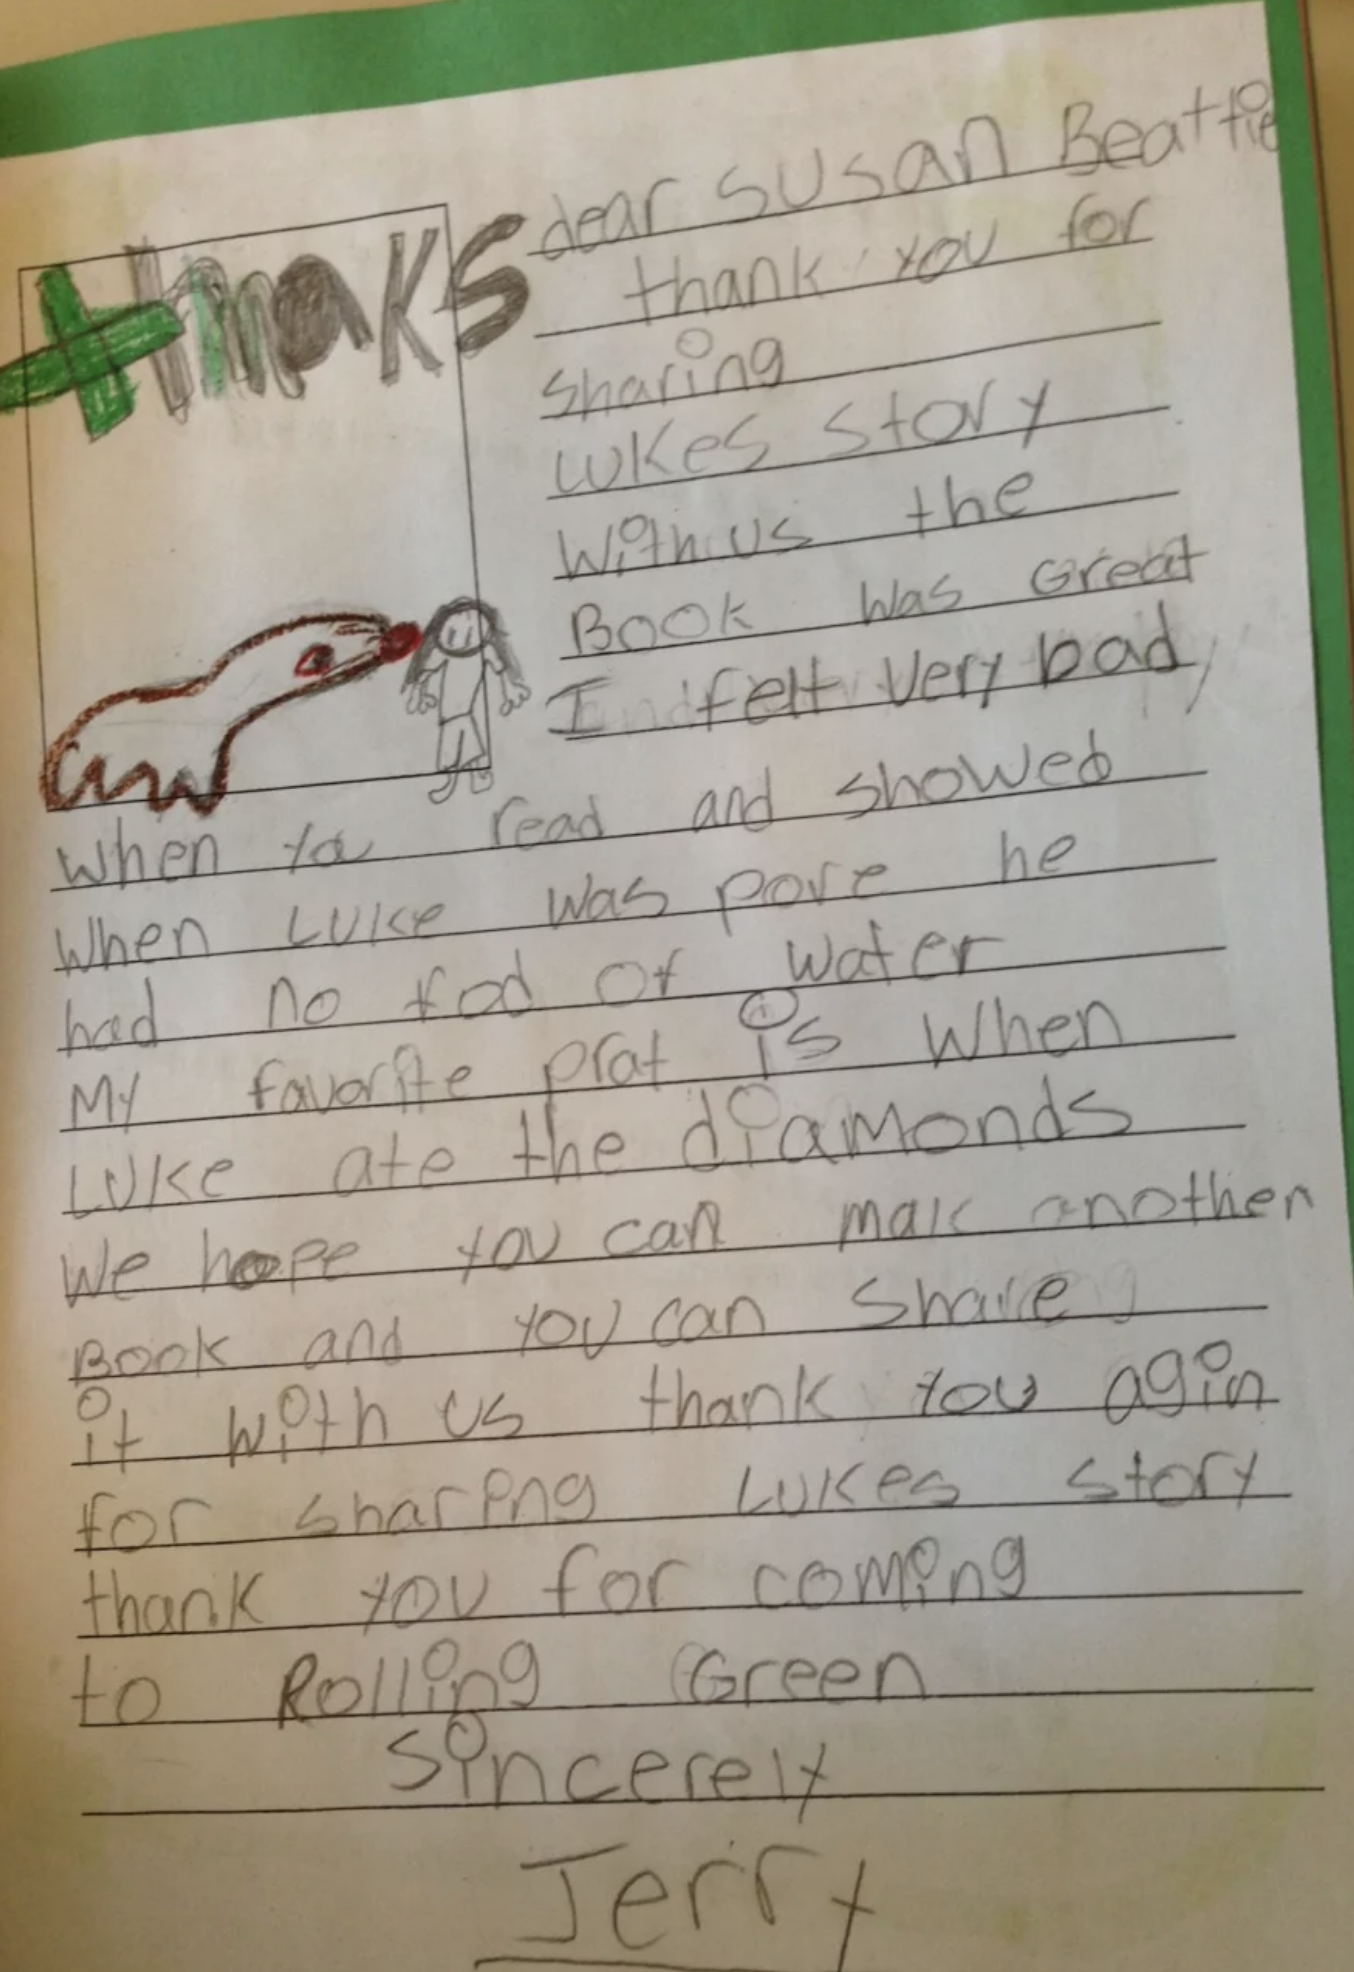 thnaks
dear Susan Beattie
thank you for
sharing
Lukes story
With us the
Book was Great
I felt very bad
when yo read and showed
when Luke was pore he
had no fod or water
My favorite prat is when
Luke ate the diamonds
We hope you can mak another
Book and you can share
it with us thank you agin
for sharing Lukes story
thank you for coming
to Rolling Green
Sincerely
Jerry